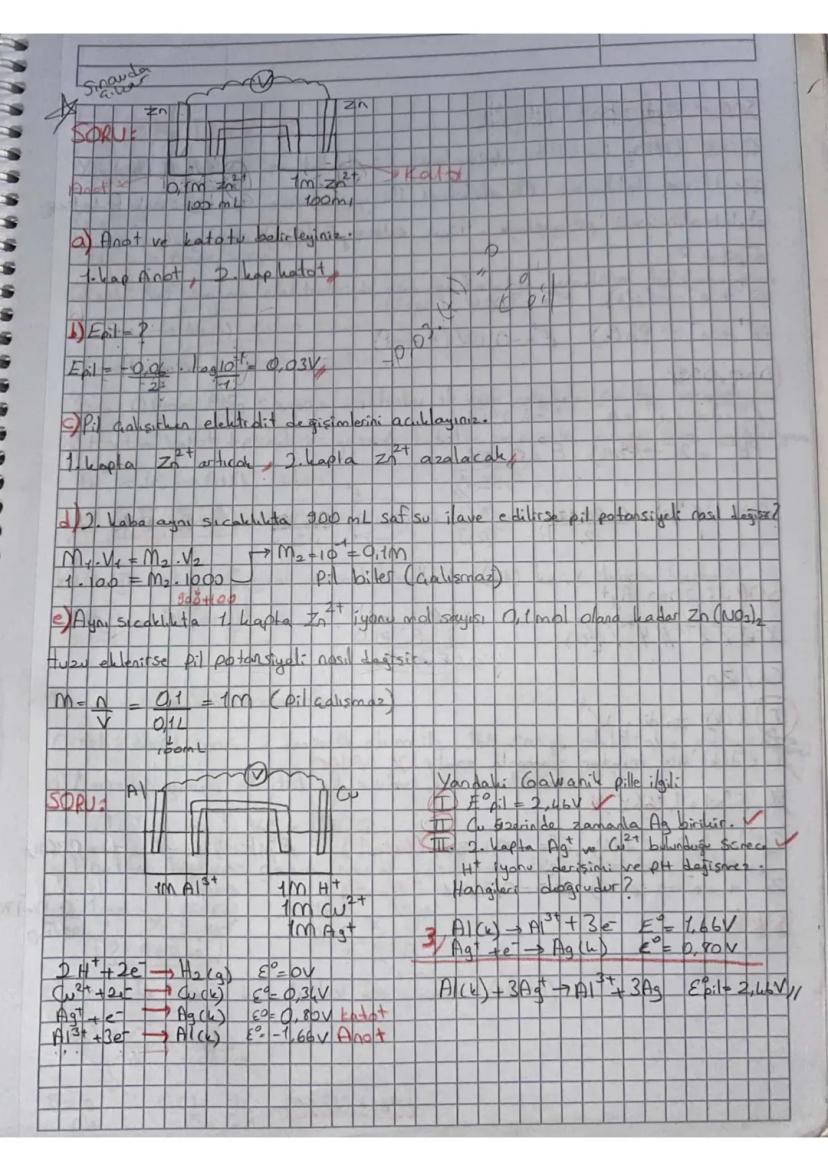 Sınavda
çıkar
V
Zn
Zn
SORU:
Anot
0,1M Zn²⁺
1M Zn²⁺
Katot
100 mL
100ml
a) Anot ve katotu belirleyiniz.
1. kap Anot, 2. kap katot
b) Epil = ?
Epil = -0,06/2 . log10⁻¹/1 = 0,03V
c) Pil çalışırken elektrolit değişimlerini açıklayınız.
1. kapta Zn²⁺ artıcak, 2. kapta Zn²⁺ azalacak
d) 2. kaba aynı sıcaklıkta 900 mL saf su ilave edilirse pil potansiyeli nasıl değişir?
M₁.V₁ = M₂.V₂ → M₂ = 10⁻¹ = 0,1M
1.100 = M₂.1000 Pil biter (çalışmaz)
900+100
e) Aynı sıcaklıkta 1. kapta Zn²⁺ iyonu mol sayısı 0,1 mol olana kadar Zn(NO₃)₂
tuzu eklenirse pil potansiyeli nasıl değişir.
M = n/V = 0,1/0,1L = 1M (pil çalışmaz)
100mL
V
Al
Cu
SORU:
1M Al³⁺
1M H⁺
1M Cu²⁺
1M Ag⁺
Yandaki Galvanik pille ilgili
I E°pil = 2,46V ✓
II Cu üzerinde zamanla Ag birikir. ✓
III. 2. kapta Ag⁺ ve Cu²⁺ bulunduğu sürece ✓
H⁺ iyonu derişimi ve pH değişmez.
Hangileri doğrudur?
Al(k) → Al³⁺ + 3e E° = 1,66V
3/ Ag⁺ + e⁻ → Ag(k) E° = 0,80V
Al(k) + 3Ag⁺ → Al³⁺ + 3Ag E°pil = 2,46V//
2H⁺ + 2e⁻ → H₂(g) E° = 0V
Cu²⁺ + 2e⁻ → Cu(k) E° = 0,34V
Ag⁺ + e⁻ → Ag(k) E° = 0,80V Katot
Al³⁺ + 3e⁻ → Al(k) E° = -1,66V Anot